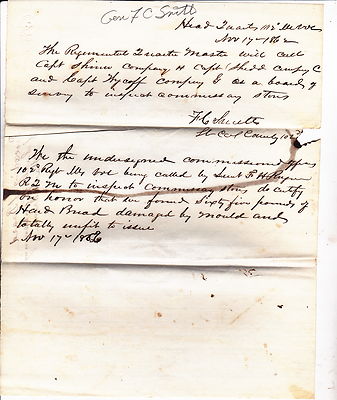 Gen F C Smith
Head Quarts 102 Ills Vol
Nov 17 1862
The Regimental Quarter Master will call
Capt Company H Capt Shedd Company C
and Capt Wycoff company G as a board of
survey to inspect commissary stores
F C Smith
Lt Col Comdg 102
We the undersigned commissioned officers
102 Regt Ills Vol being called by Lieut F H
R Q M to inspect commissary stores do certify
on honor that we found sixty five pounds of
Hard Bread damaged by mould and
totally unfit to issue
Nov 17 1862